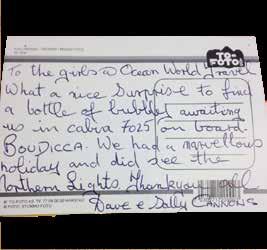 TO-FOTO!
To the girls @ Ocean World Travel
What a nice Surprise to find
a bottle of bubbles awaiting
us in cabin 7025 on board
BOUDICCA. We had a marvellous
holiday and did see the
Northern Lights. Thankyou all
Dave & Sally CANNONS